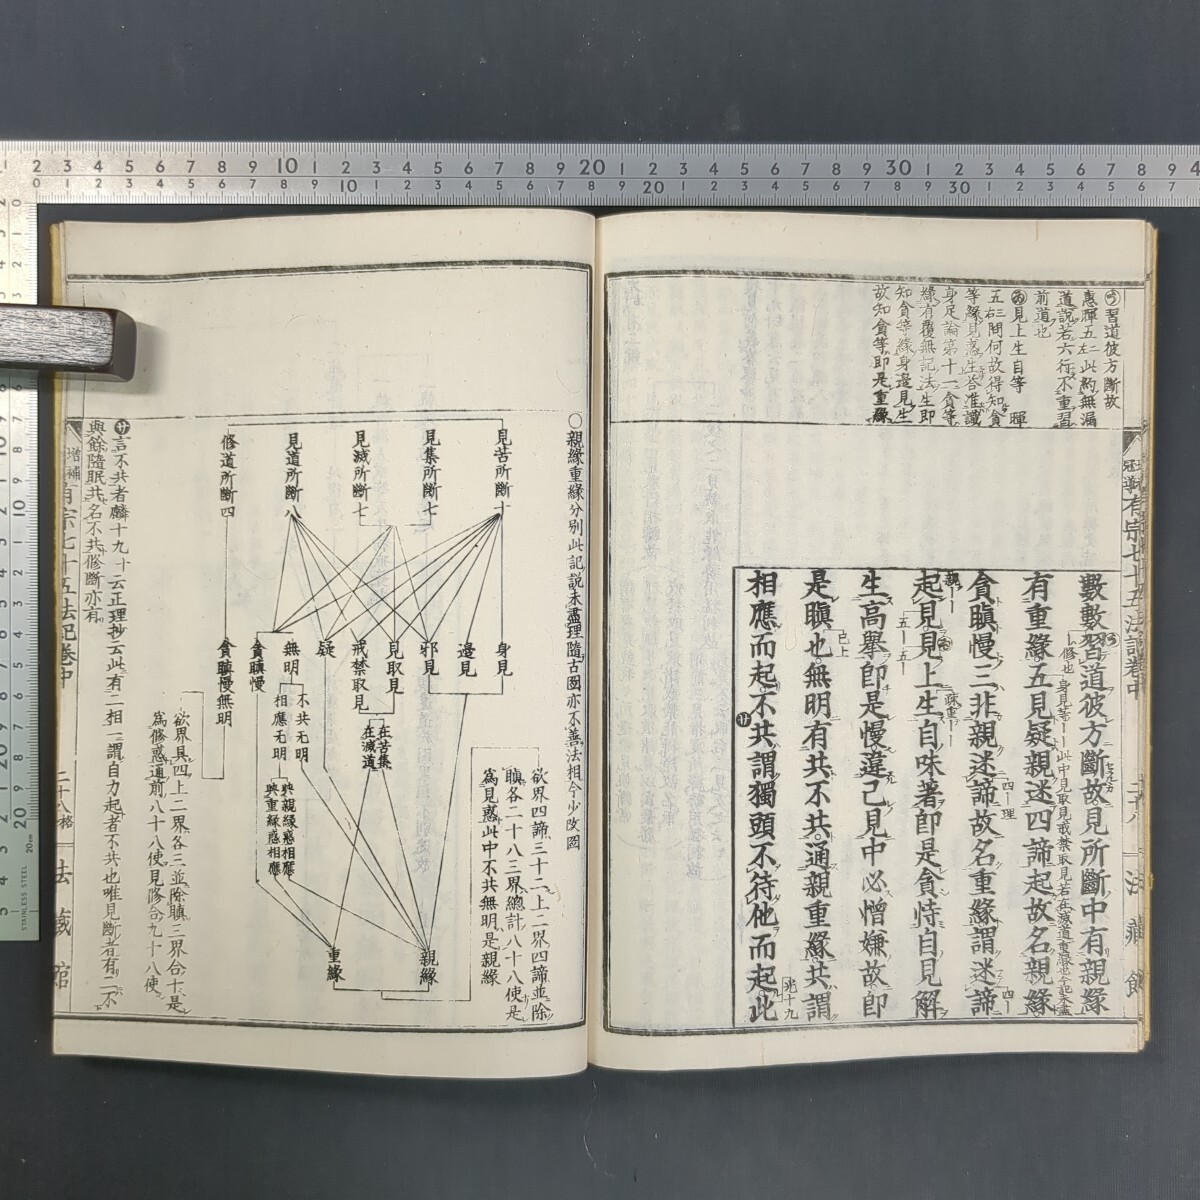 習道彼方斷故
惠暉五二此約無漏
道說若六行不重習
前道也
見上生自等 暉
五右三問何故得知貪
等緣見惑生答准識
身足論第十一貪等
緣有覆無記法生即
知貪等緣身邊見生
故知貪等即是重緣
數數習道彼方斷故見所斷中有親緣
有重緣五見疑親迷四諦起故名親緣
貪瞋慢三非親迷諦故名重緣謂迷諦
起見見上生自味著即是貪恃自見解
生高舉即是慢違己見中必憎嫌故即
是瞋也無明有共不共通親重緣共謂
相應而起不共謂獨頭不待他而起此
有宗七十五法記卷中
法藏館
〇親緣重緣分別此記說未盡理隨古圖亦不善法相今少改圖
見苦所斷十
見集所斷七
見滅所斷七
見道所斷八
修道所斷四
身見
邊見
邪見
見取見
戒禁取見
疑
無明
貪瞋慢
貪瞋慢無明
在苦集
在滅道
不共无明
相應无明
與親緣惑相應
與重緣惑相應
親緣
重緣
欲界四諦三十二上二界四諦並除
瞋各二十八三界總計八十八使是
爲見惑此中不共無明是親緣
欲界具四上二界各三並除瞋三界合十是
爲修惑通前八十八使見修合九十八使
言不共者麟十九十云正理抄云此有二相一謂自力起者不共也唯見斷者有二不
與餘隨眠共名不共修斷亦有
增補
有宗七十五法記卷中
二十八格
法藏館